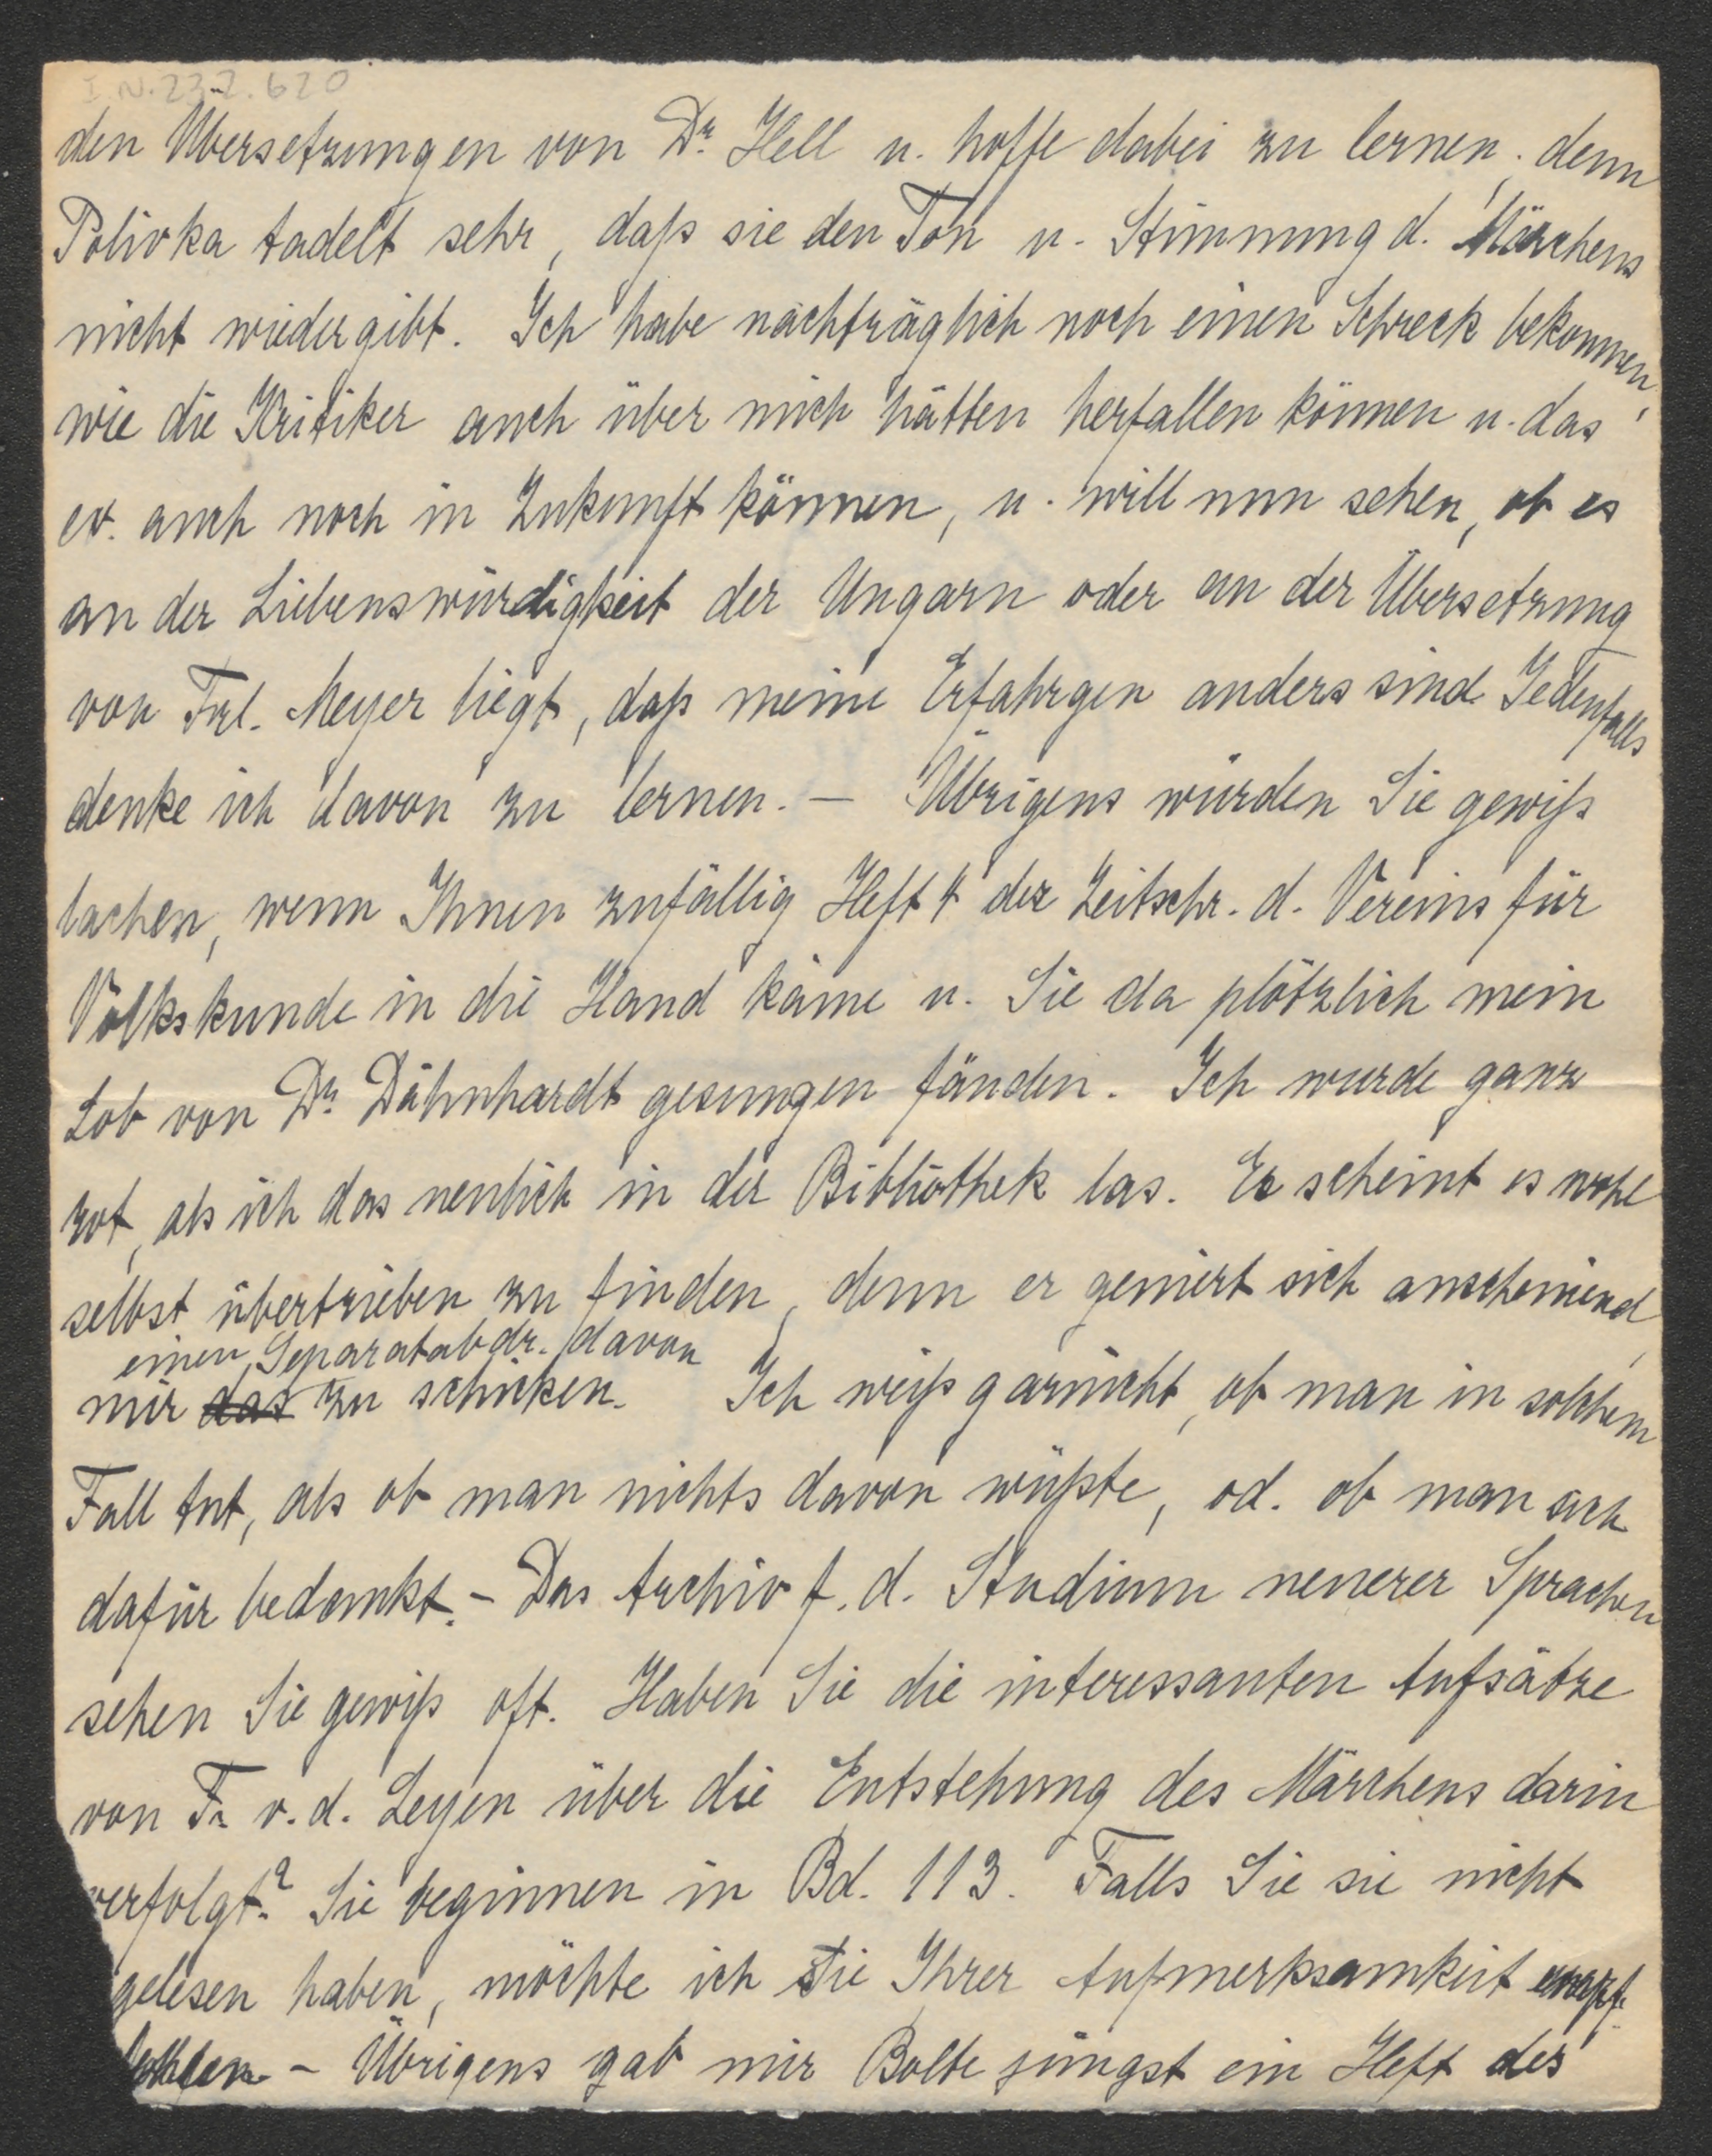 I.N. 232.620
den Übersetzungen von Dr. Hell u. hoffe dabei zu lernen, denn
Polivka tadelt sehr, daß sie den Ton u. Stimmung d. Märchens
nicht wiedergibt. Ich habe nachträglich noch einen Schreck bekommen,
wie die Kritiker auch über mich hätten herfallen können u. das
ev. auch noch in Zukunft können, u. will nun sehen, ob es
an der Liebenswürdigkeit der Ungarn oder an der Übersetzung
von Frl. Meyer liegt, daß meine Erfahrgen anders sind. Jedenfalls
denke ich davon zu lernen. – Übrigens würden Sie gewiß
lachen, wenn Ihnen zufällig Heft 4 der Zeitschr. d. Vereins für
Volkskunde in die Hand käme u. Sie da plötzlich mein
Lob von Dr. Dähnhardt gesungen fänden. Ich wurde ganz
rot, als ich das neulich in der Bibliothek las. Er scheint es wohl
selbst übertrieben zu finden, denn er geniert sich anscheinend,
einen Separatabdr. davon
mir das zu schicken. Ich weiß garnicht, ob man in solchem
Fall tut, als ob man nichts davon wüßte, od. ob man sich
dafür bedankt. – Das Archiv f. d. Studium neuerer Sprachen
sehen Sie gewiß oft. Haben Sie die interessanten Aufsätze
von Fr. v. d. Leyen über die Entstehung des Märchens darin
verfolgt? Sie beginnen in Bd. 113. Falls Sie sie nicht
gelesen haben, möchte ich sie Ihrer Aufmerksamkeit empf-
fehlen – Übrigens gab mir Bolte jüngst ein Heft des